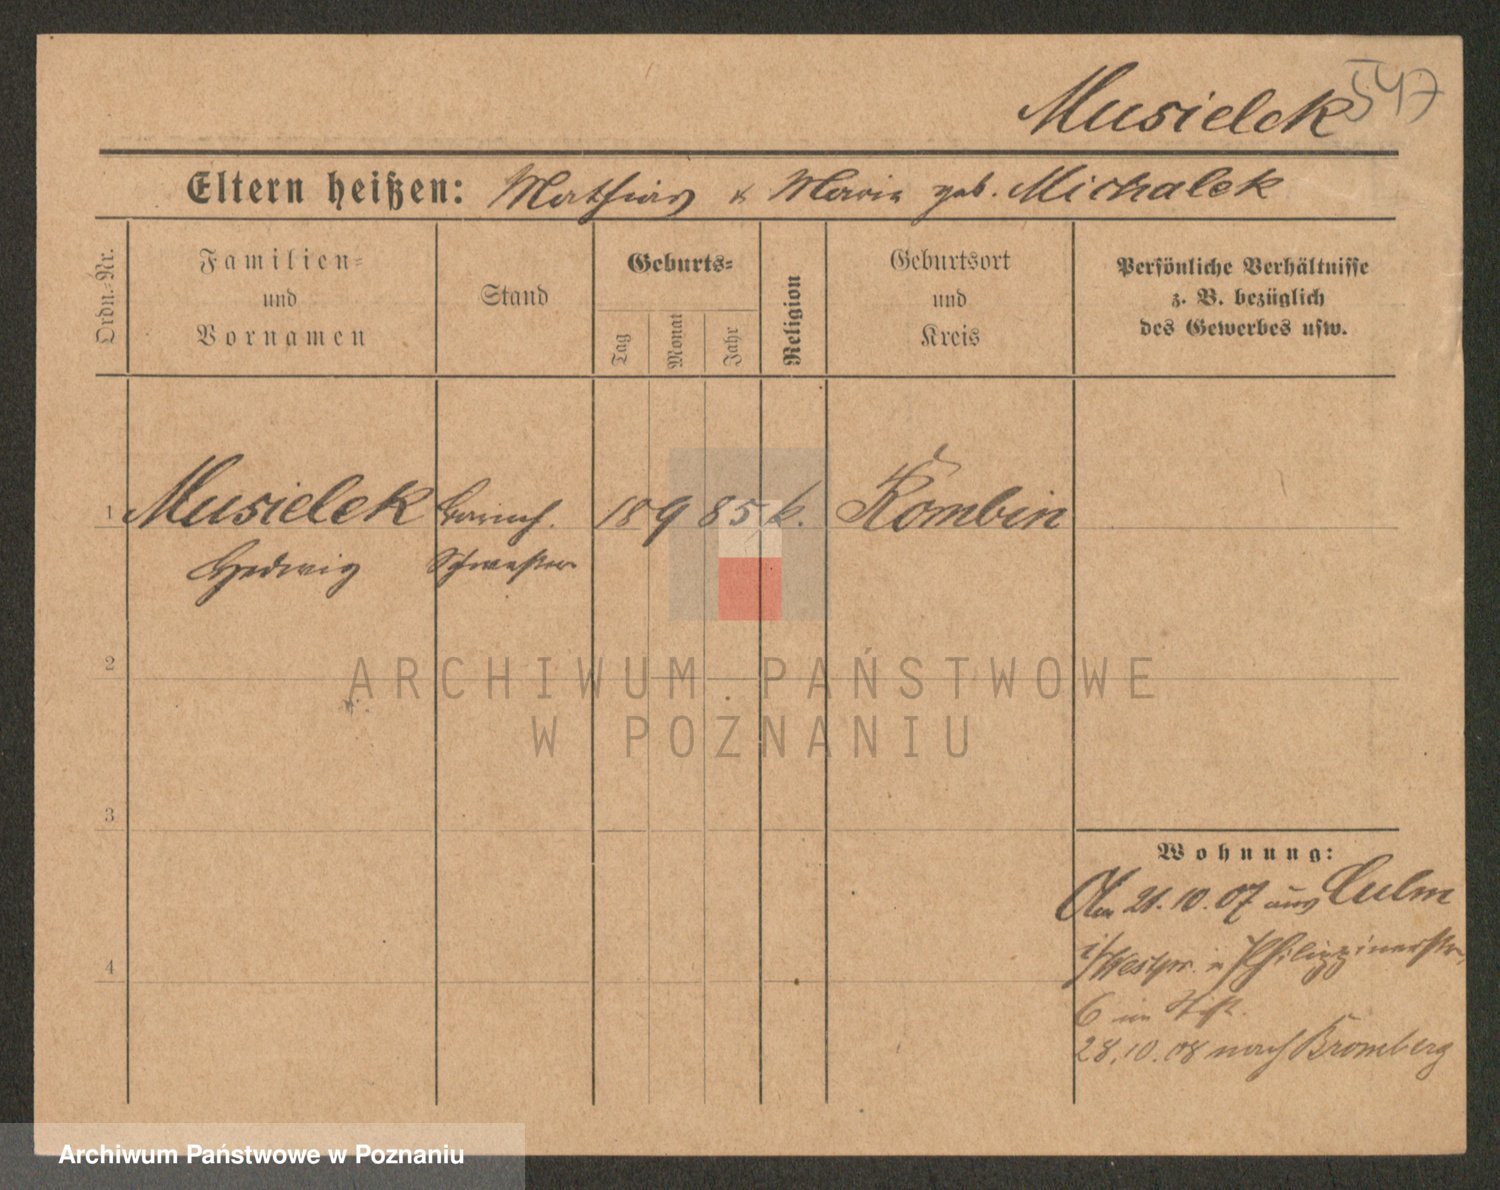 Musielek 547
Eltern heißen: Mathias & Maria geb. Michalek
Ordn.-Nr.
Familien-
und
Vornamen
Stand
Geburts-
Tag
Monat
Jahr
Religion
Geburtsort
und
Kreis
Persönliche Verhältnisse
z. B. bezüglich
des Gewerbes usw.
1 Musielek 18 9 85 k. Rombin
Hedwig Schwester
2
3
4
Wohnung:
Am 21.10.07 aus Culm
i/Westpr. n Philippinerstr.
6 im Stift.
28.10.08 nach Bromberg
ARCHIWUM PAŃSTWOWE
W POZNANIU
Archiwum Państwowe w Poznaniu